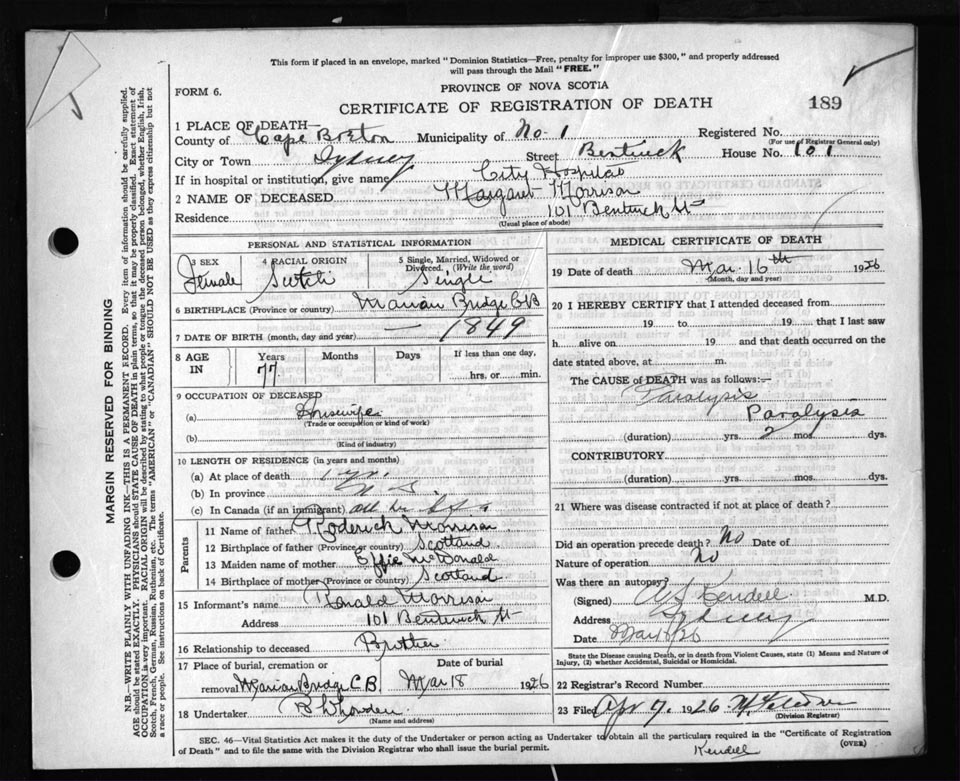 This form if placed in an envelope, marked "Dominion Statistics—Free, penalty for improper use $300," and properly addressed
will pass through the Mail "FREE."
FORM 6.
PROVINCE OF NOVA SCOTIA
CERTIFICATE OF REGISTRATION OF DEATH
189
1 PLACE OF DEATH—
County of Cape Breton Municipality of No. 1 Registered No.
(For use of Registrar General only)
City or Town Sydney Street Bentinck House No. 101
If in hospital or institution, give name City Hospital
2 NAME OF DECEASED Margaret Morrison
Residence 101 Bentinck St
(Usual place of abode)
PERSONAL AND STATISTICAL INFORMATION
3 SEX Female
4 RACIAL ORIGIN Scotch
5 Single, Married, Widowed or
Divorced. (Write the word)
Single
6 BIRTHPLACE (Province or country) Marian Bridge CB
7 DATE OF BIRTH (month, day and year) — 1849
8 AGE IN Years 77 Months Days If less than one day,
hrs. or min.
9 OCCUPATION OF DECEASED
(a) Housewife
(Trade or occupation or kind of work)
(b)
(Kind of industry)
10 LENGTH OF RESIDENCE (in years and months)
(a) At place of death 1 yr.
(b) In province N. S.
(c) In Canada (if an immigrant) all her life
Parents
11 Name of father Roderick Morrison
12 Birthplace of father (Province or country) Scotland
13 Maiden name of mother Effie McDonald
14 Birthplace of mother (Province or country) Scotland
15 Informant's name Ronald Morrison
Address 101 Bentinck St
16 Relationship to deceased Brother
17 Place of burial, cremation or
removal Marian Bridge C.B.
Date of burial
Mar 18 1926
18 Undertaker
(Name and address)
MEDICAL CERTIFICATE OF DEATH
19 Date of death Mar. 16th 1926
(Month, day and year)
20 I HEREBY CERTIFY that I attended deceased from
19 to 19 that I last saw
h alive on 19 and that death occurred on the
date stated above, at m.
The CAUSE of DEATH was as follows:—
Paralysis
Paralysis
(duration) yrs. 2 mos. dys.
CONTRIBUTORY
(duration) yrs. mos. dys.
21 Where was disease contracted if not at place of death?
Did an operation precede death? No Date of
Nature of operation No
Was there an autopsy?
(Signed) Kendell M.D.
Address Sydney
Date
State the Disease causing Death, or in death from Violent Causes, state (1) Means and Nature of
Injury, (2) whether Accidental, Suicidal or Homicidal.
22 Registrar's Record Number
23 Filed Apr 7, 1926
(Division Registrar)
SEC. 46—Vital Statistics Act makes it the duty of the Undertaker or person acting as Undertaker to obtain all the particulars required in the "Certificate of Registration
of Death" and to file the same with the Division Registrar who shall issue the burial permit.
(OVER)
Kendell
MARGIN RESERVED FOR BINDING
N.B.—WRITE PLAINLY WITH UNFADING INK—THIS IS A PERMANENT RECORD. Every item of information should be carefully supplied.
AGE should be stated EXACTLY. PHYSICIANS should STATE CAUSE OF DEATH in plain terms, so that it may be properly classified. Exact statement of
OCCUPATION is very important. RACIAL ORIGIN will be described by stating to what people or tongue the deceased person belonged, whether English, Irish,
Scotch, French, German, Russian, Ruthenian, etc. The terms "AMERICAN" or "CANADIAN" SHOULD NOT BE USED as they express citizenship but not
a race or people. See instructions on back of Certificate.